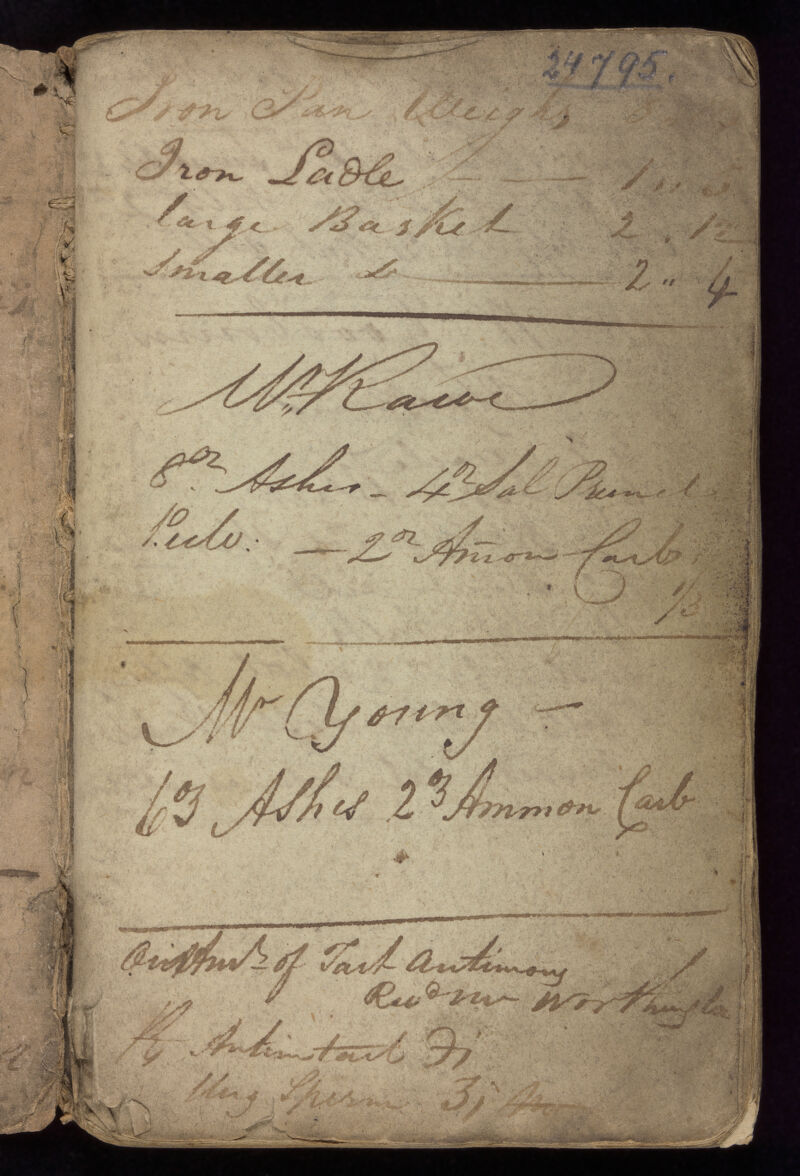 24795.
Iron Pan Weighs
Iron Ladle — — 1
large Basket 2 . 12
Smaller Do — 2 " 4
Mr. Rawe
8oz Ashes - 4oz Sal Prunel
Pulv: — 2oz Amon Carb
1/3
Mr Young —
6oz Ashes 2oz Ammon Carb
of Tart Antimony
Revd Mr Worthington
℞ Antim tart ℈j
Ung Sperm ʒj